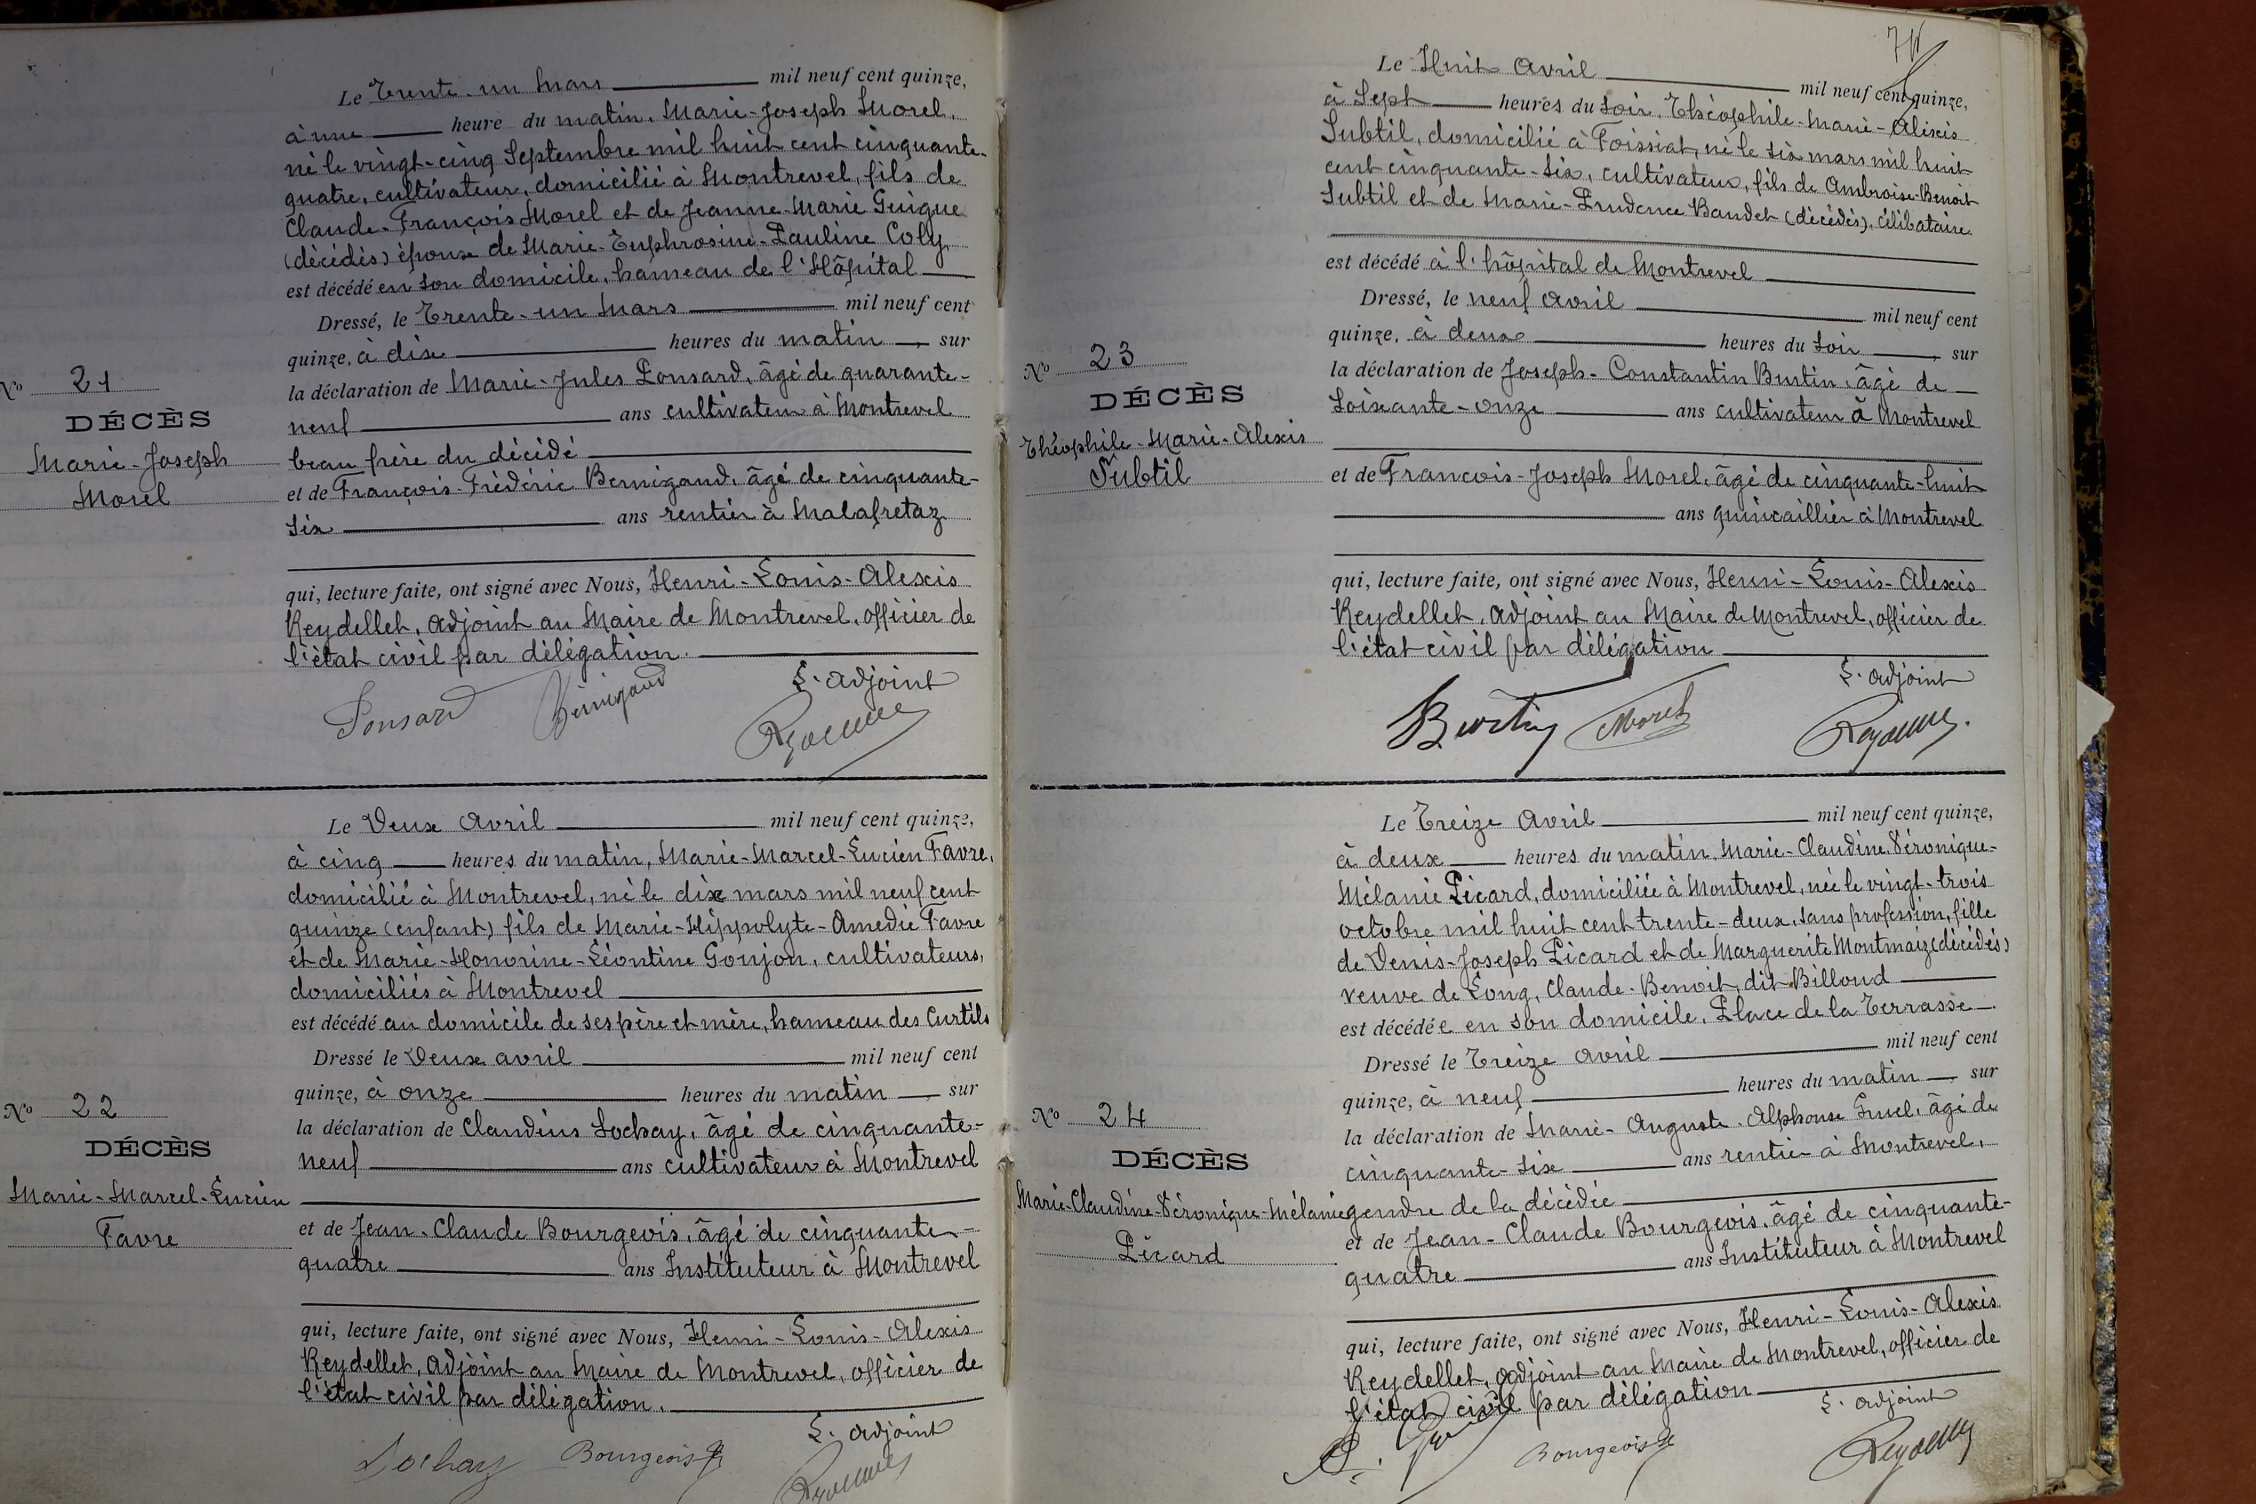 Le Trente-un Mars mil neuf cent quinze,
à une heure du matin, Marie-Joseph Morel,
né le vingt-cinq Septembre mil huit cent cinquante-
quatre, cultivateur, domicilié à Montrevel, fils de
Claude-François Morel et de Jeanne-Marie Guigue
(décédés) époux de Marie-Euphrosine-Pauline Coly
est décédé en son domicile, hameau de l'Hôpital
Dressé, le Trente-un Mars mil neuf cent
quinze, à dix heures du matin, sur
la déclaration de Marie-Jules Ponsard, âgé de quarante-
neuf ans cultivateur à Montrevel
beau frère du décédé
et de François-Frédéric Bernigaud, âgé de cinquante-
six ans rentier à Malafretaz
qui, lecture faite, ont signé avec Nous, Henri-Louis-Alexis
Reydellet, adjoint au Maire de Montrevel, officier de
l'état civil par délégation.
L. adjoint
Ponsard Bernigaud
No 21
DÉCÈS
Marie-Joseph
Morel
Le Deux Avril mil neuf cent quinze,
à cinq heures du matin, Marie-Marcel-Lucien Favre,
domicilié à Montrevel, né le dix mars mil neuf cent
quinze (enfant) fils de Marie-Hippolyte-Amédée Favre
et de Marie-Honorine-Léontine Goujon, cultivateurs,
domiciliés à Montrevel
est décédé au domicile de ses père et mère, hameau des Curtils
Dressé le Deux avril mil neuf cent
quinze, à onze heures du matin, sur
la déclaration de Claudius Lochay, âgé de cinquante-
neuf ans cultivateur à Montrevel
et de Jean-Claude Bourgeois, âgé de cinquante-
quatre ans Instituteur à Montrevel
qui, lecture faite, ont signé avec Nous, Henri-Louis-Alexis
Reydellet, adjoint au Maire de Montrevel, officier de
l'état civil par délégation.
L. adjoint
Lochay Bourgeois
No 22
DÉCÈS
Marie-Marcel-Lucien
Favre
Le Huit Avril mil neuf cent quinze,
à Sept heures du soir, Théophile-Marie-Alexis
Subtil, domicilié à Foissiat, né le six mars mil huit
cent cinquante-six, cultivateur, fils de Ambroise-Benoit
Subtil et de Marie-Prudence Baudet (décédés), célibataire
est décédé à l'hôpital de Montrevel
Dressé, le neuf avril mil neuf cent
quinze, à deux heures du soir, sur
la déclaration de Joseph-Constantin Burtin, âgé de
soixante-onze ans cultivateur à Montrevel
et de François-Joseph Morel, âgé de cinquante-huit
ans quincaillier à Montrevel
qui, lecture faite, ont signé avec Nous, Henri-Louis-Alexis
Reydellet, adjoint au Maire de Montrevel, officier de
l'état civil par délégation
L. adjoint
Burtin Morel
No 23
DÉCÈS
Théophile-Marie-Alexis
Subtil
Le Treize Avril mil neuf cent quinze,
à deux heures du matin, Marie-Claudine-Véronique-
Mélanie Picard, domiciliée à Montrevel, née le vingt-trois
octobre mil huit cent trente-deux, sans profession, fille
de Denis-Joseph Picard et de Marguerite Montmaiz (décédés)
veuve de Long, Claude-Benoit, dit Billoud
est décédée en son domicile, Place de la Terrasse
Dressé le Treize Avril mil neuf cent
quinze, à neuf heures du matin, sur
la déclaration de Marie-Auguste-Alphonse, âgé de
cinquante-six ans rentier à Montrevel,
gendre de la décédée
et de Jean-Claude Bourgeois, âgé de cinquante-
quatre ans Instituteur à Montrevel
qui, lecture faite, ont signé avec Nous, Henri-Louis-Alexis
Reydellet, adjoint au Maire de Montrevel, officier de
l'état civil par délégation
L. adjoint
Bourgeois
No 24
DÉCÈS
Marie-Claudine-Véronique-Mélanie
Picard